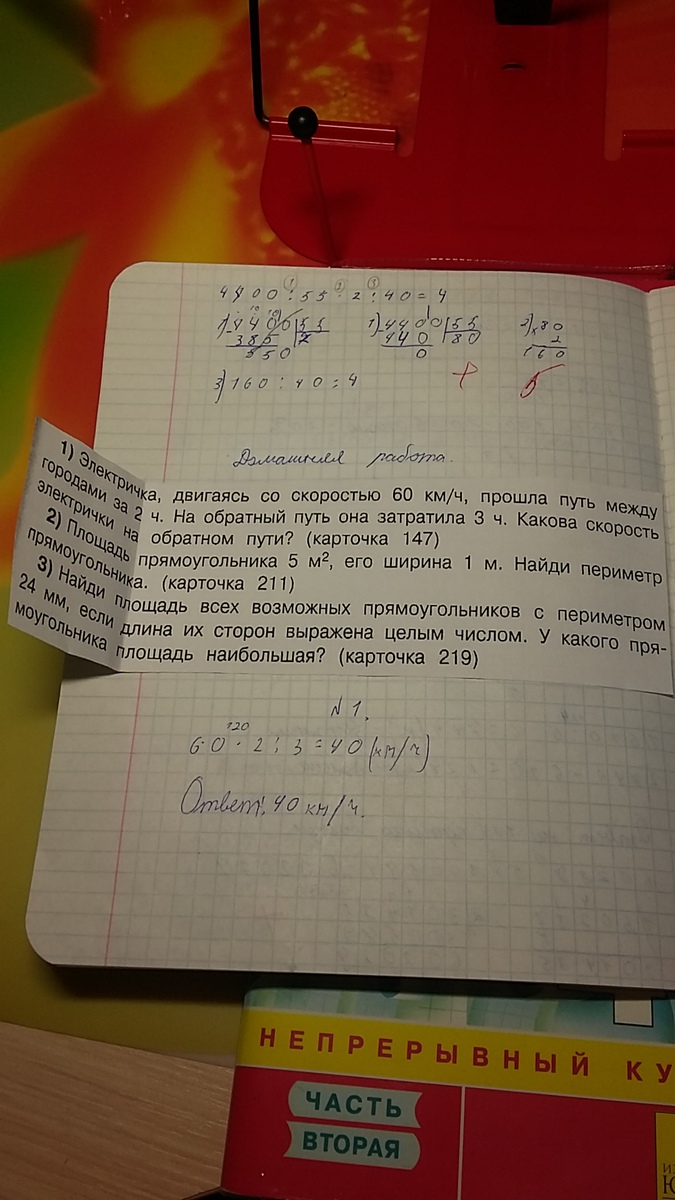 4400 : 55 · 2 : 40 = 4
1) 4400 55 1) 4400 55 2) 80
385 2 440 80 2
550 0 160
3) 160 : 40 = 4
Домашняя работа.
1) Электричка, двигаясь со скоростью 60 км/ч, прошла путь между
городами за 2 ч. На обратный путь она затратила 3 ч. Какова скорость
электрички на обратном пути? (карточка 147)
2) Площадь прямоугольника 5 м², его ширина 1 м. Найди периметр
прямоугольника. (карточка 211)
3) Найди площадь всех возможных прямоугольников с периметром
24 мм, если длина их сторон выражена целым числом. У какого пря-
моугольника площадь наибольшая? (карточка 219)
№ 1.
120
60 · 2 : 3 = 40 (км/ч)
Ответ: 40 км/ч.
НЕПРЕРЫВНЫЙ КУ
ЧАСТЬ
ВТОРАЯ